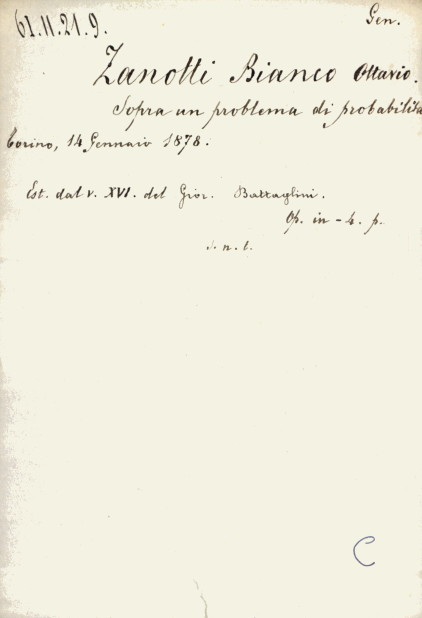 61.11.21.9.
Gen.
Zanotti Bianco Ottavio.
Sopra un problema di probabilità
Torino, 14 Gennaio 1878.
Est. dal v. XVI. del Gior. Battaglini.
Op. in-4. p.
s. n. t.
C